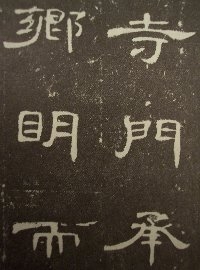 寺門承
鄉明而